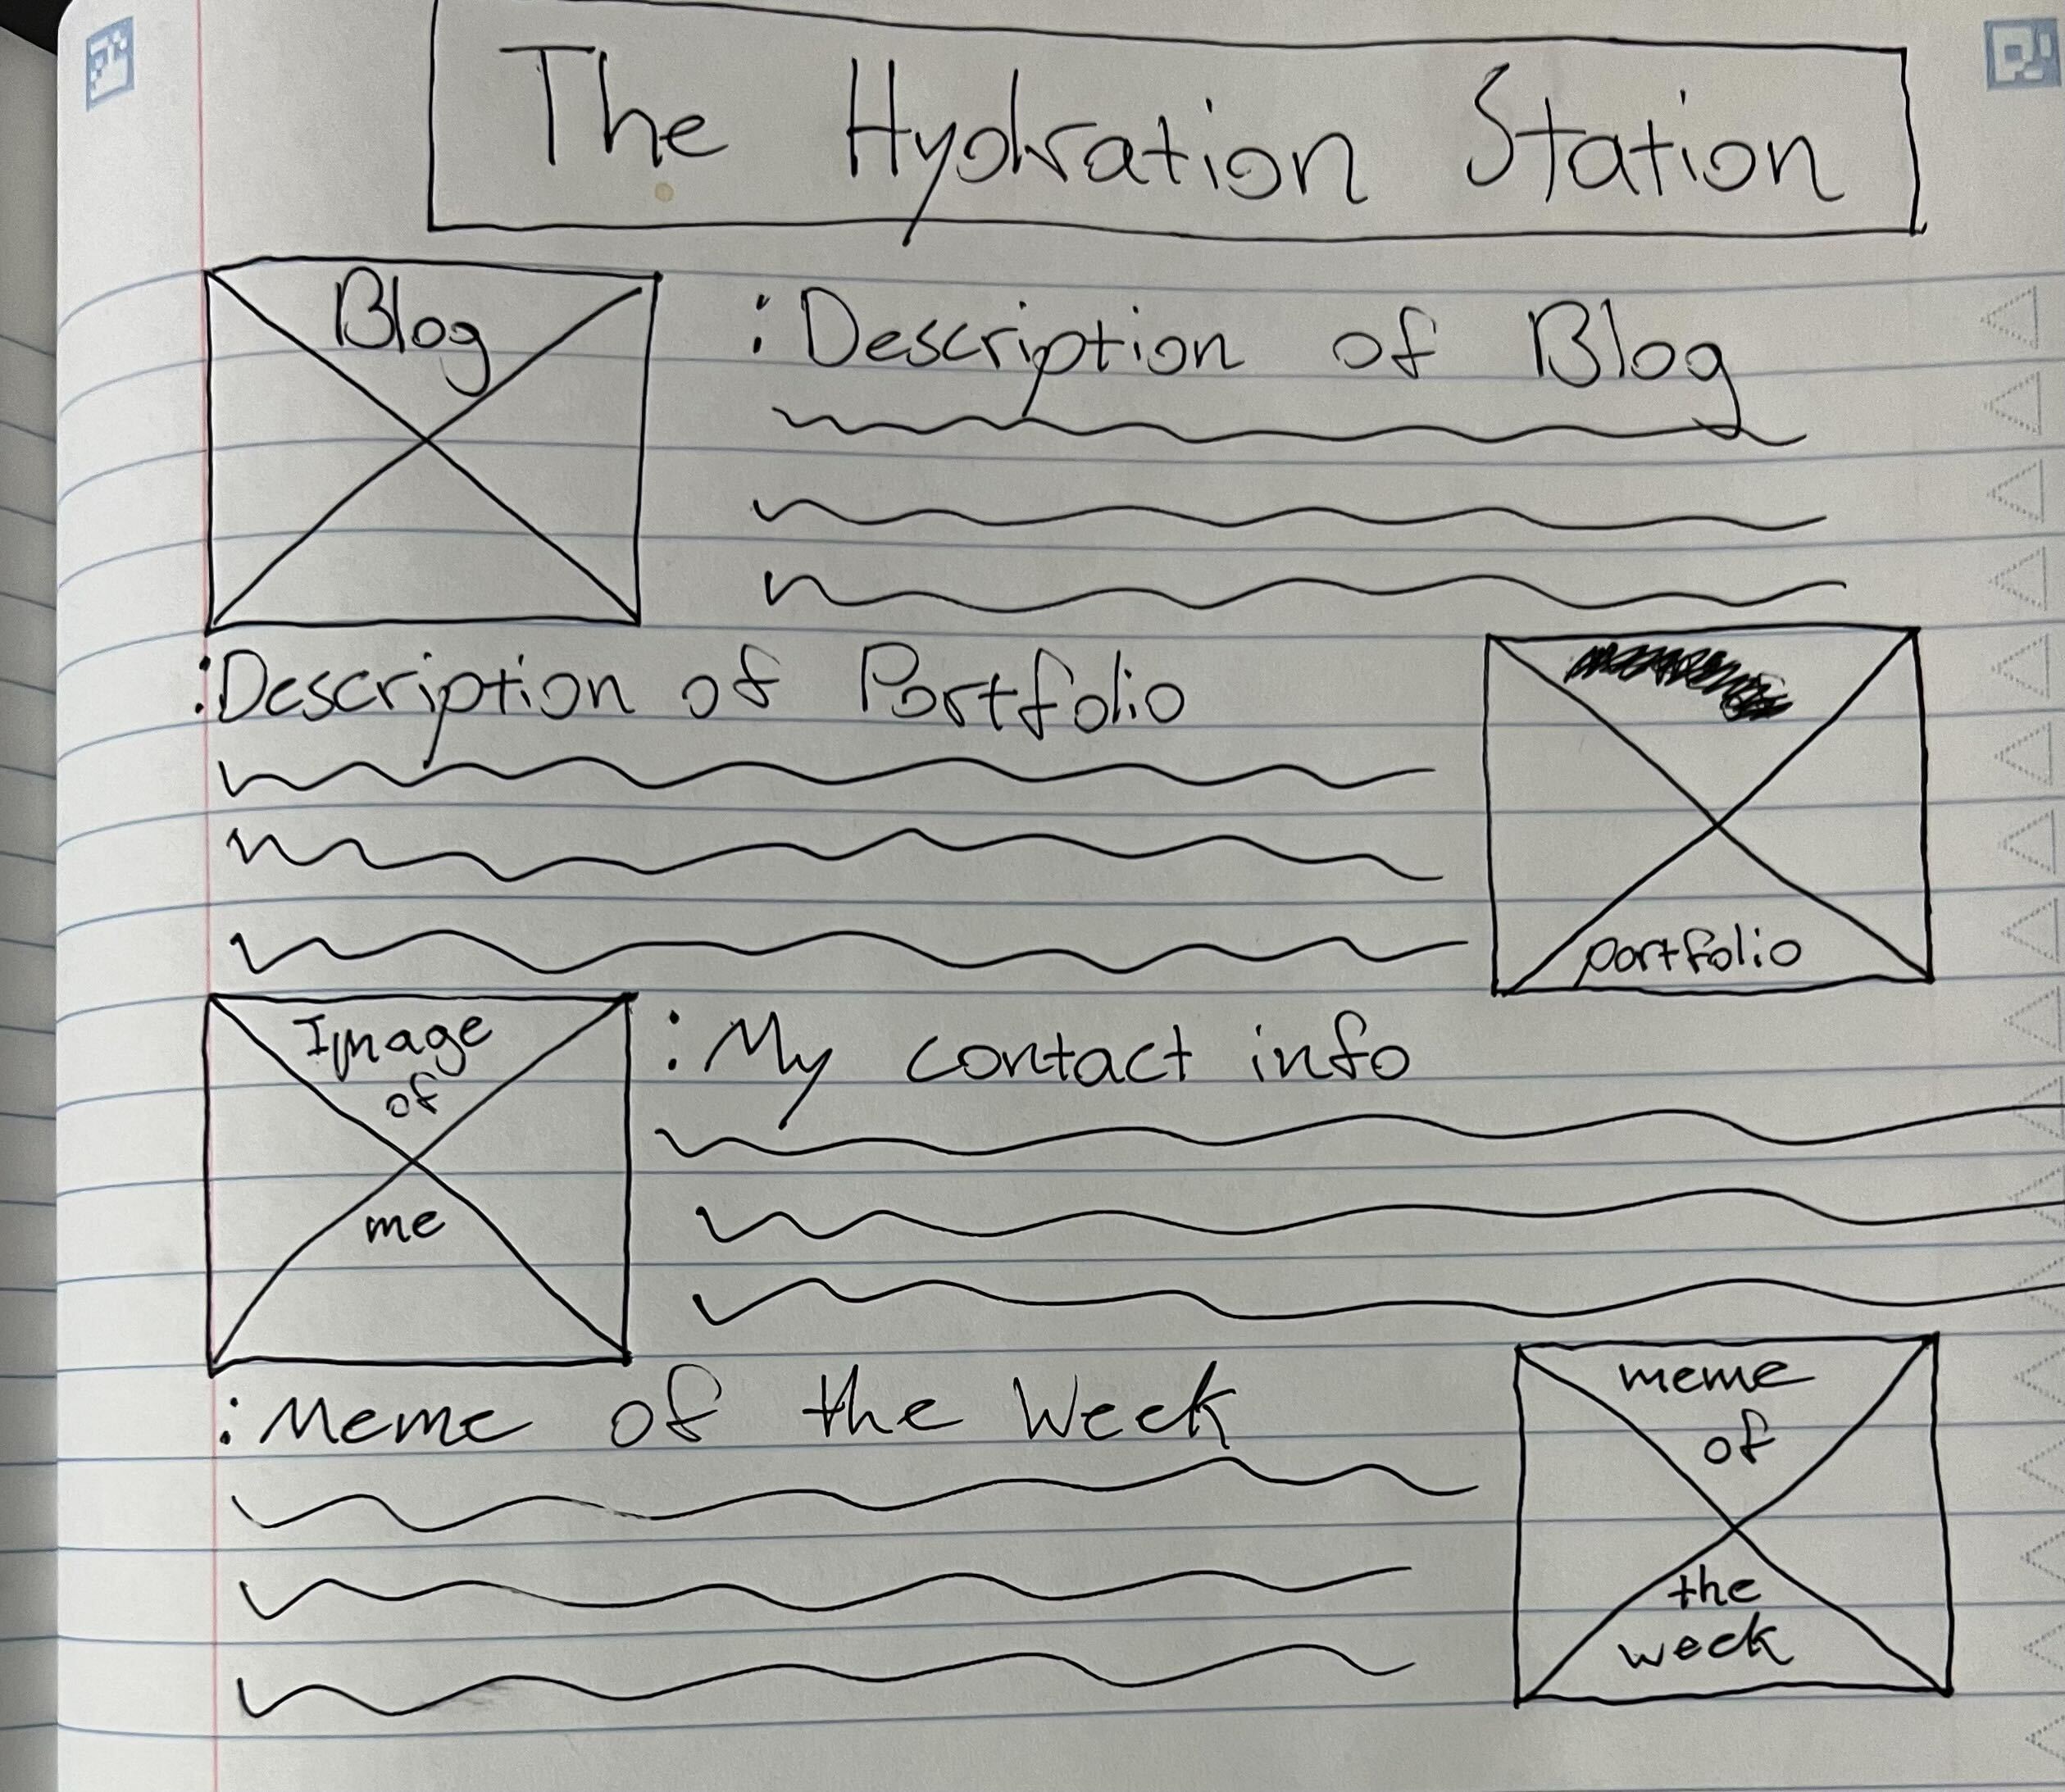 The Hydration Station
Blog
: Description of Blog
: Description of Portfolio
portfolio
Image
of
me
: My contact info
: Meme of the Week
meme
of
the
week